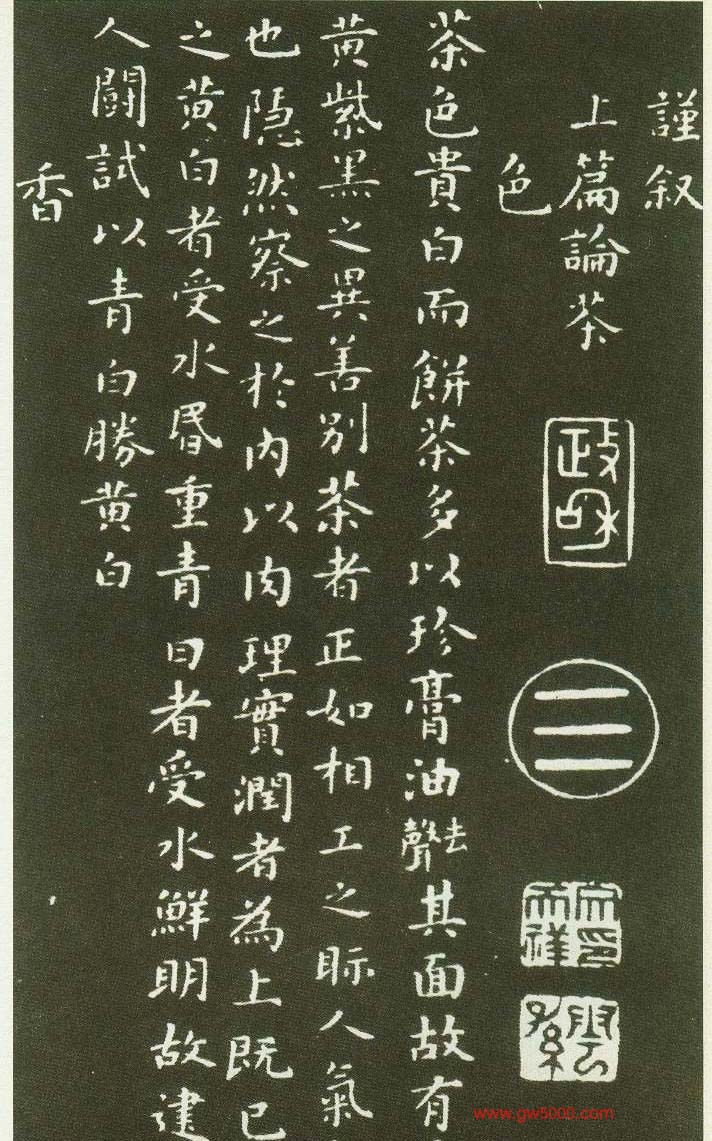 謹叙
上篇論茶
政和
色
茶色貴白而餅茶多以珍膏油去聲其面故有
黃紫黑之異善別茶者正如相工之眎人氣
也隱然察之於内以肉理實潤者為上既已
之黃白者受水昬重青白者受水鮮明故建
人鬪試以青白勝黃白
香
www.gw5000.com